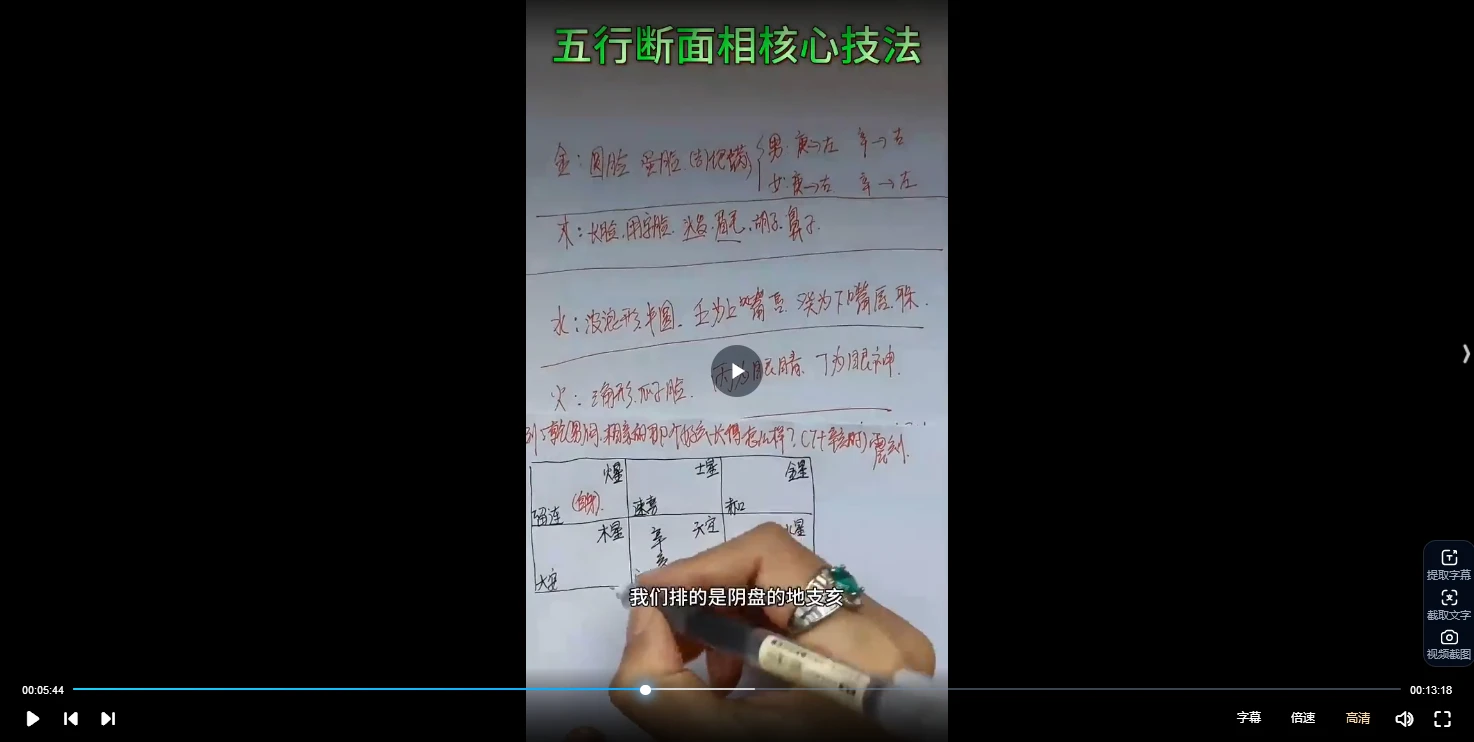 五行断面相核心技法
金：圆脸 蛋脸
男：庚→左 辛→右
女：庚→右 辛→左
木：长脸.用字脸. 头发.眉毛.胡子.鼻子.
水：波浪形.半圆. 壬为上嘴唇. 癸为下嘴唇.
火：三角形.瓜子脸. 丙为眼睛. 丁为眼神.
火星 土星 金星
留连 速喜 赤口
木星 天空 水星
辛
亥
大安
我们排的是阴盘的地支亥
提取字幕
截取文字
视频截图
00:05:44 00:13:18
字幕 倍速 高清